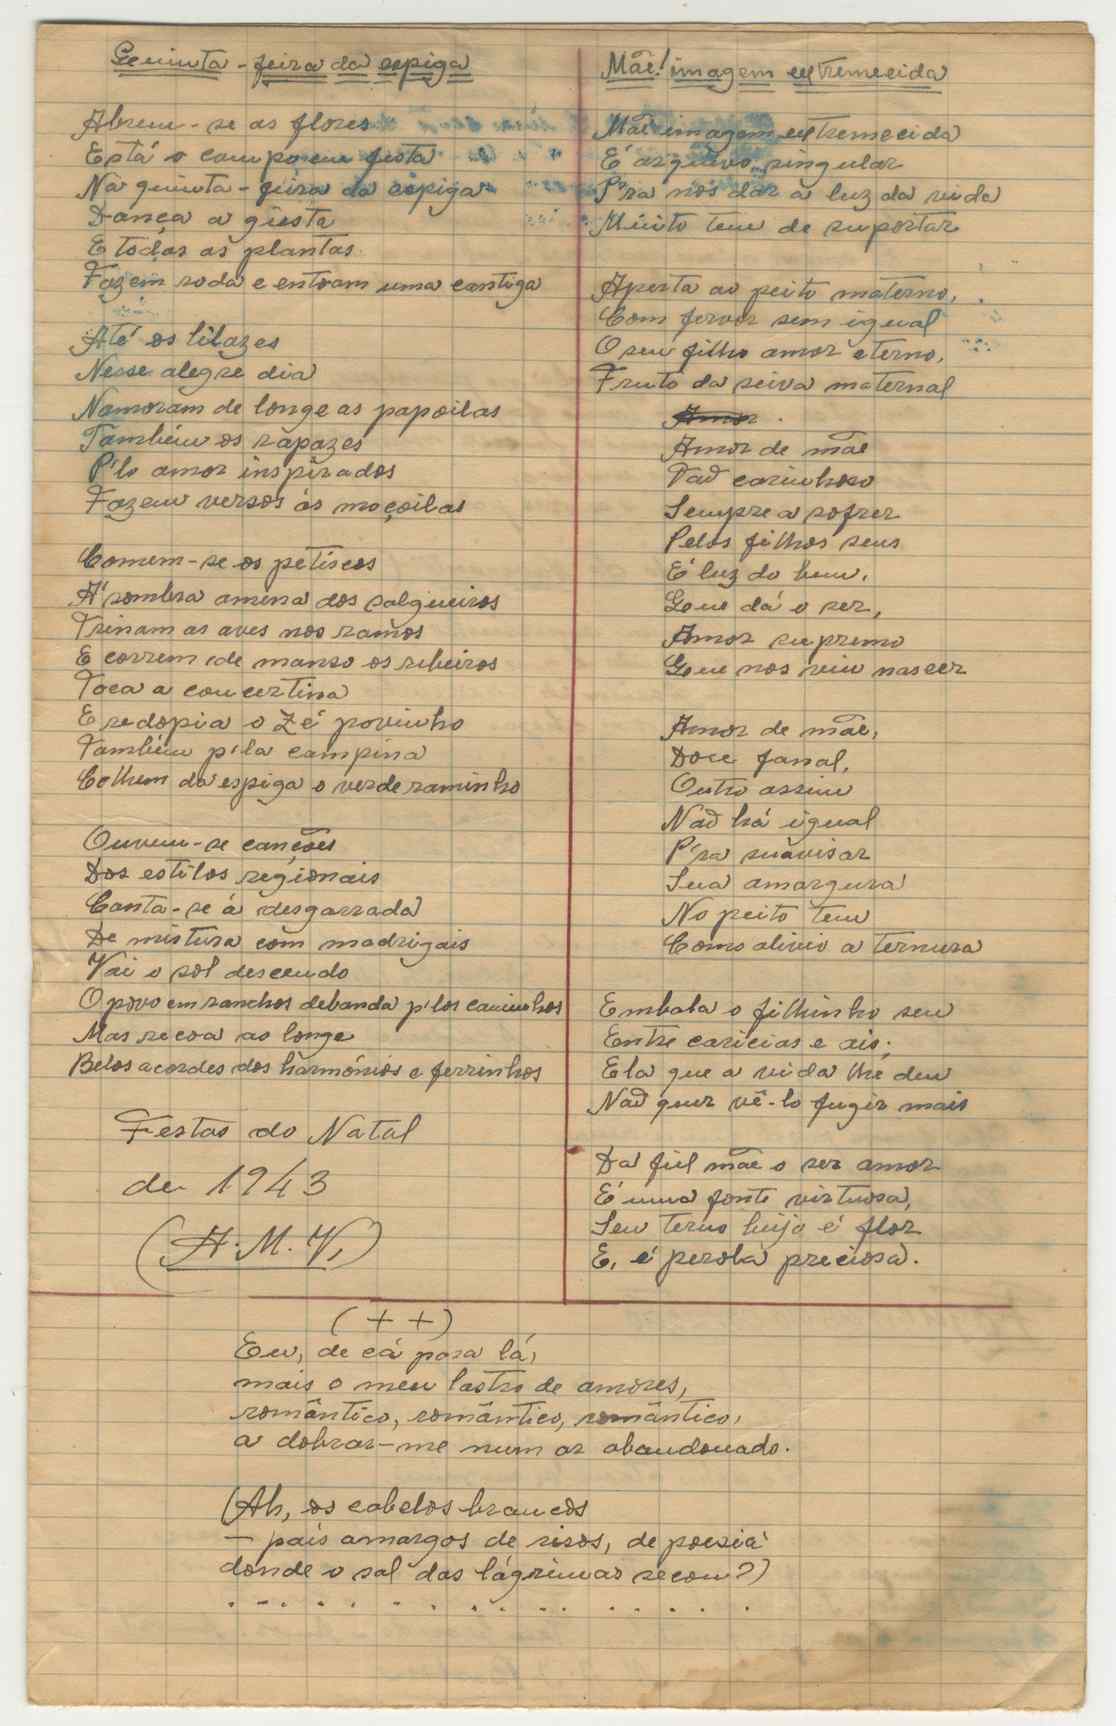 Quinta-feira da espiga
Abrem-se as flores
Está o campo em festa
Na quinta-feira da espiga
Dança a giesta
E todas as plantas
Fazem roda e entoam uma cantiga
Até os lilazes
Nesse alegre dia
Namoram de longe as papoilas
Também os rapazes
P'lo amor inspirados
Fazem versos ás moçoilas
Comem-se os petiscos
Á sombra amena dos salgueiros
Trinam as aves nos ramos
E correm de manso os ribeiros
Toca a concertina
E redopia o Zé povinho
Também p'la campina
Colhem da espiga o verde raminho
Ouvem-se canções
Dos estilos regionais
Canta-se á desgarrada
De mistura com madrigais
Vai o sol descendo
O povo em ranchos debanda p'los caminhos
Mas recoa ao longe
Belos acordes dos harmónios e ferrinhos
Festas do Natal
de 1943
(A. M. V.)
Mãe! imagem extremecida
Mãe imagem extremecida
É arquivo singular
P'ra nos dar a luz da vida
Muito tem de suportar
Aperta ao peito materno,
Com fervor sem igual
O seu filho amor eterno,
Fruto da seiva maternal
Amor.
Amor de mãe
Tão carinhoso
Sempre a sofrer
Pelos filhos seus
É luz do bem,
Que dá o ser,
Amor supremo
Que nos viu nascer
Amor de mãe,
Doce fanal,
Outro assim
Não há igual
P'ra suavisar
Sua amargura
No peito tem
Como alivio a ternura
Embala o filhinho seu
Entre caricias e ais;
Ela que a vida lhe deu
Não quer vê-lo fugir mais
Da fiel mãe o ser amor
É uma fonte virtuosa,
Seu terno beijo é flor
E, é perola preciosa.
(++)
Eu, de cá para lá,
mais o meu lastro de amores,
romântico, romântico, romântico,
a dobrar-me num ar abandonado.
(Ah, os cabelos brancos
- pais amargos de risos, de poesia
donde o sal das lágrimas secou?)
. - . . . - . . . . . . . . .